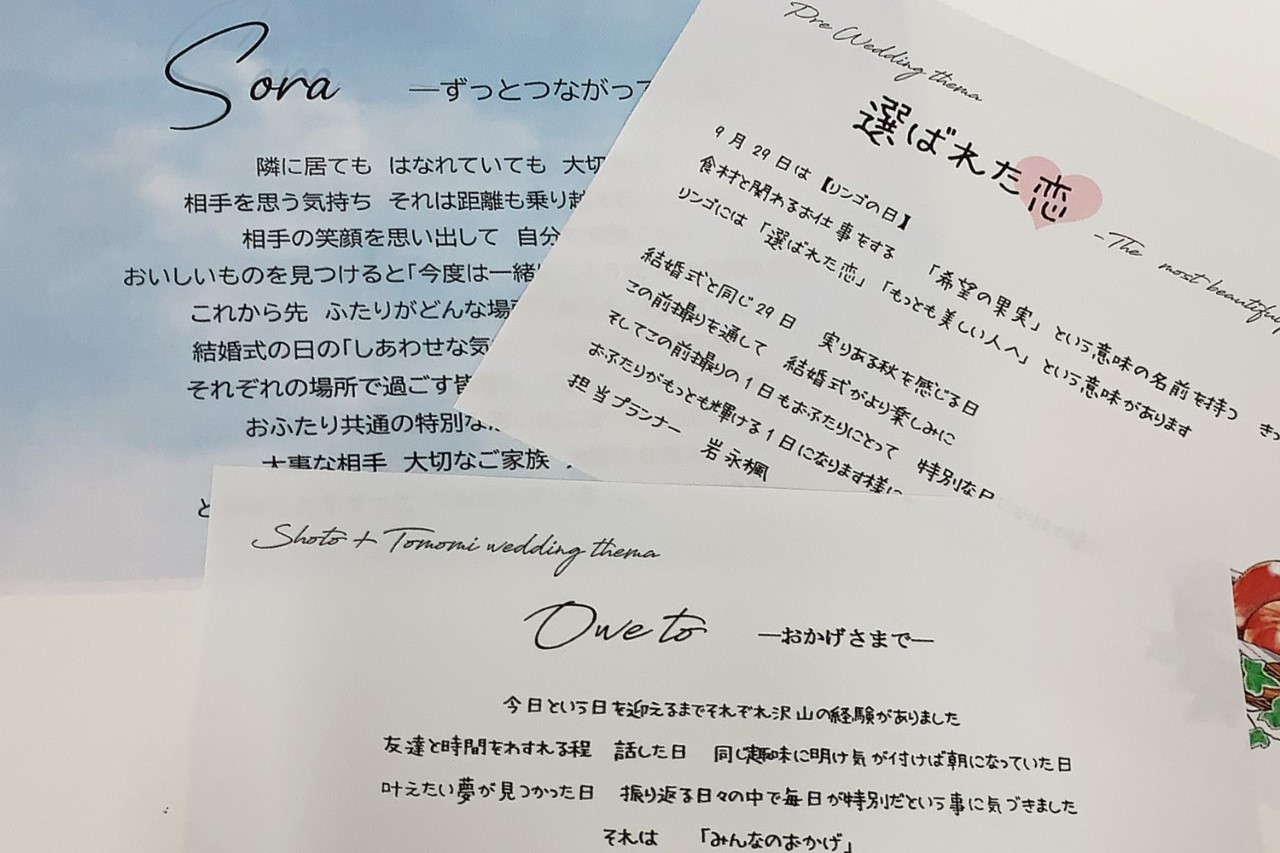 Sora —ずっとつながって
隣に居ても はなれていても 大切
相手を思う気持ち それは距離も乗り越
相手の笑顔を思い出して 自分
おいしいものを見つけると「今度は一緒
これから先 ふたりがどんな場所
結婚式の日の「しあわせな気
それぞれの場所で過ごす皆
おふたり共通の特別な
大事な相手 大切なご家族
と
Pre Wedding thema
選ばれた恋
-The most beautiful
9月29日は【リンゴの日】
食材と関わるお仕事をする 「希望の果実」という意味の名前を持つ きっ
リンゴには「選ばれた恋」「もっとも美しい人へ」という意味があります
結婚式と同じ29日 実りある秋を感じる日
この前撮りを通して 結婚式がより楽しみに
そしてこの前撮りの1日もおふたりにとって 特別な日
おふたりがもっとも輝ける1日になります様に
担当プランナー 岩永楓
Shoto + Tomomi wedding thema
Owe to —おかげさまで—
今日という日を迎えるまでそれぞれ沢山の経験がありました
友達と時間をわすれる程 話した日 同じ趣味に明け気が付けば朝になっていた日
叶えたい夢が見つかった日 振り返る日々の中で毎日が特別だという事に気づきました
それは 「みんなのおかげ」